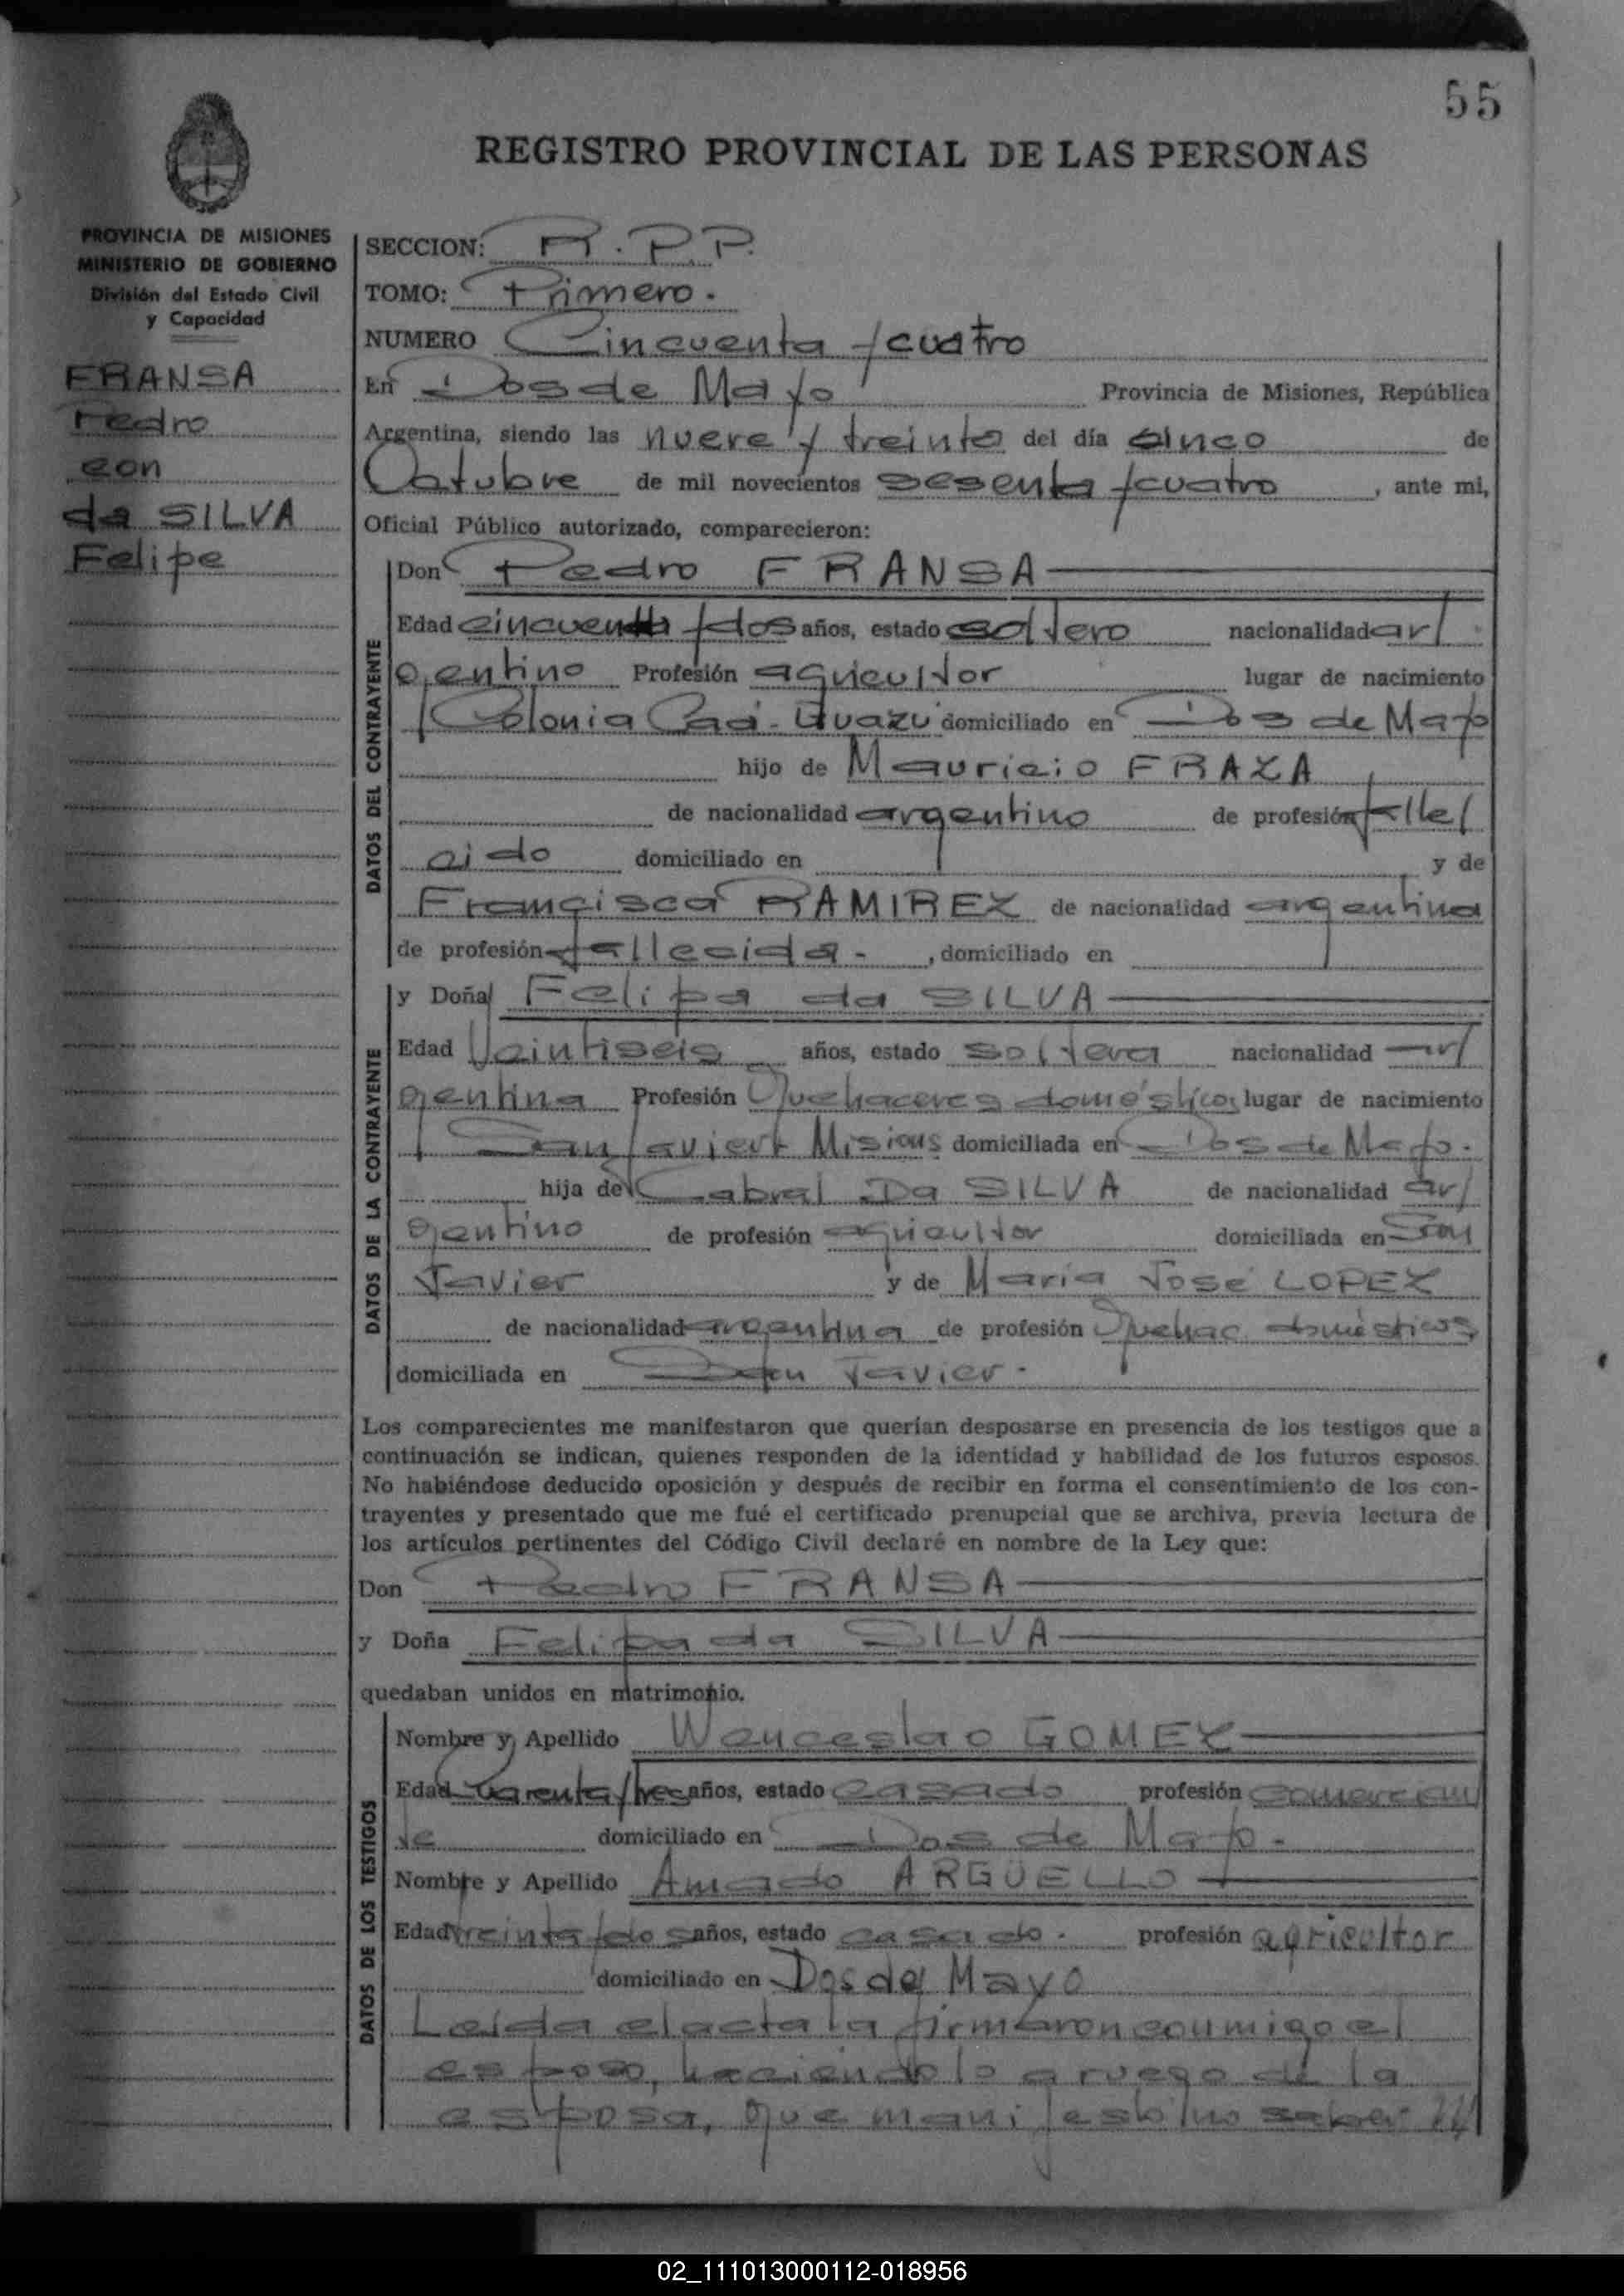 55
REGISTRO PROVINCIAL DE LAS PERSONAS
PROVINCIA DE MISIONES
MINISTERIO DE GOBIERNO
División del Estado Civil
y Capacidad
FRANSA
Pedro
con
da SILVA
Felipe
SECCION: R.P.P.
TOMO: Primero.
NUMERO Cincuenta y cuatro
En Dos de Mayo Provincia de Misiones, República
Argentina, siendo las nueve y treinta del día cinco de
Octubre de mil novecientos sesenta y cuatro, ante mi,
Oficial Público autorizado, comparecieron:
DATOS DEL CONTRAYENTE
Don Pedro FRANSA
Edad cincuenta y dos años, estado soltero nacionalidad ar/
gentino Profesión agricultor lugar de nacimiento
Colonia Caá-Guazú domiciliado en Dos de Mayo
hijo de Mauricio FRAZA
de nacionalidad argentino de profesión falle/
cido domiciliado en y de
Francisca RAMIREZ de nacionalidad argentina
de profesión fallecida-, domiciliado en
DATOS DE LA CONTRAYENTE
y Doña Felipa da SILVA
Edad Veintiseis años, estado soltera nacionalidad ar/
gentina Profesión Quehaceres domésticos lugar de nacimiento
San Javier Misiones domiciliada en Dos de Mayo.
hija de Cabral Da SILVA de nacionalidad ar/
gentino de profesión agricultor domiciliada en San
Javier y de María José LOPEZ
de nacionalidad argentina de profesión Quehac. domésticos
domiciliada en San Javier-
Los comparecientes me manifestaron que querían desposarse en presencia de los testigos que a
continuación se indican, quienes responden de la identidad y habilidad de los futuros esposos.
No habiéndose deducido oposición y después de recibir en forma el consentimiento de los con-
trayentes y presentado que me fué el certificado prenupcial que se archiva, previa lectura de
los artículos pertinentes del Código Civil declaré en nombre de la Ley que:
Don Pedro FRANSA
y Doña Felipa da SILVA
quedaban unidos en matrimonio.
DATOS DE LOS TESTIGOS
Nombre y Apellido Wenceslao GOMEZ
Edad Cuarenta y tres años, estado casado profesión comercian
te domiciliado en Dos de Mayo-
Nombre y Apellido Amado ARGÜELLO
Edad treinta y dos años, estado casado. profesión agricultor
domiciliado en Dos de Mayo
Leída el acta la firmaron conmigo el
esposo, haciéndolo a ruego de la
esposa, que manifestó no saber
02_111013000112-018956